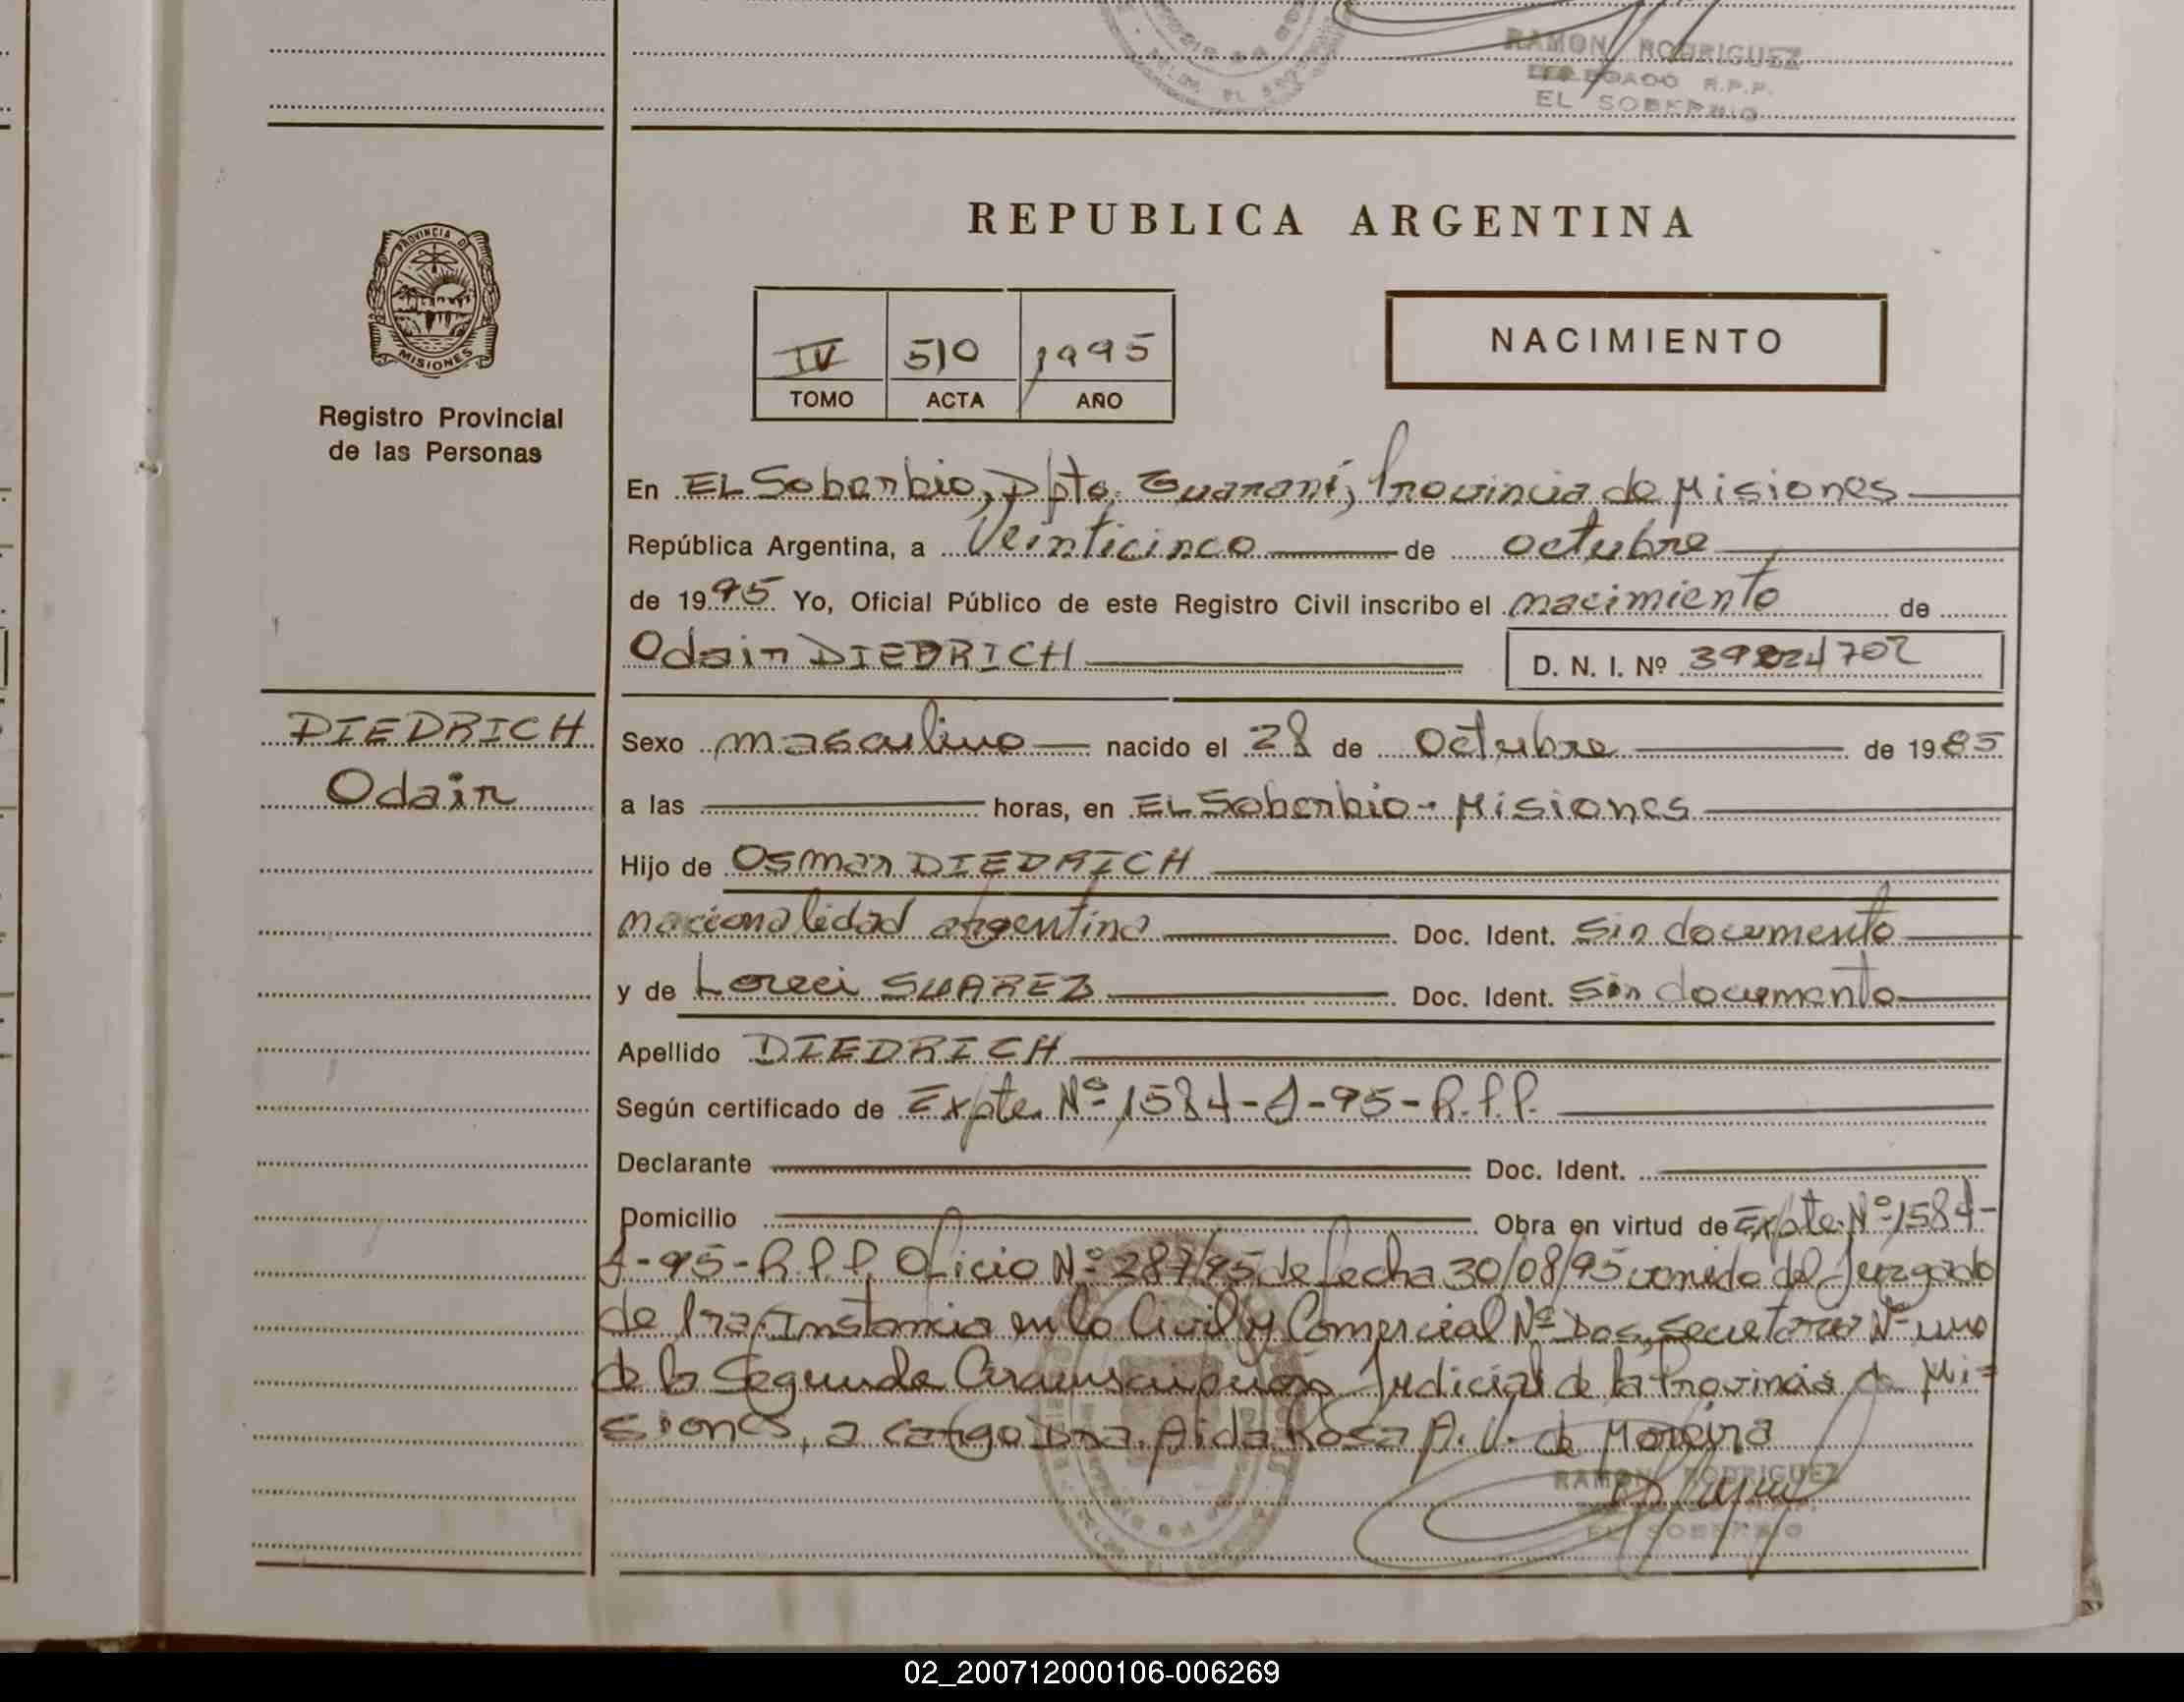 RAMON RODRIGUEZ
DELEGADO R.P.P.
EL SOBERBIO
REPUBLICA ARGENTINA
PROVINCIA DE
MISIONES
Registro Provincial
de las Personas
IV 510 1995
TOMO ACTA AÑO
NACIMIENTO
En EL Soberbio, Dpto. Guaraní, Provincia de Misiones
República Argentina, a Veinticinco de octubre
de 1995 Yo, Oficial Público de este Registro Civil inscribo el nacimiento de
Odair DIEDRICH D. N. I. Nº
DIEDRICH
Odair
Sexo masculino nacido el 28 de Octubre de 1985
a las horas, en EL Soberbio - Misiones
Hijo de Osmar DIEDRICH
nacionalidad argentina Doc. Ident. Sin documento
y de Loreci SUAREZ Doc. Ident. Sin documento
Apellido DIEDRICH
Según certificado de Expte. Nº 1584-J-95-R.P.P.
Declarante Doc. Ident.
Domicilio Obra en virtud de Expte. Nº 1584-
J-95-R.P.P. Oficio Nº 287/95 de fecha 30/08/95 venido del Juzgado
de 1ra. Instancia en lo Civil y Comercial Nº Dos, Secretaria Nº uno
de la Segunda Circunscripción Judicial de la Provincia de Mi=
siones, a cargo Dra. Aida Rosa A. V. de Moreira
RAMON RODRIGUEZ
EL SOBERBIO
02_200712000106-006269